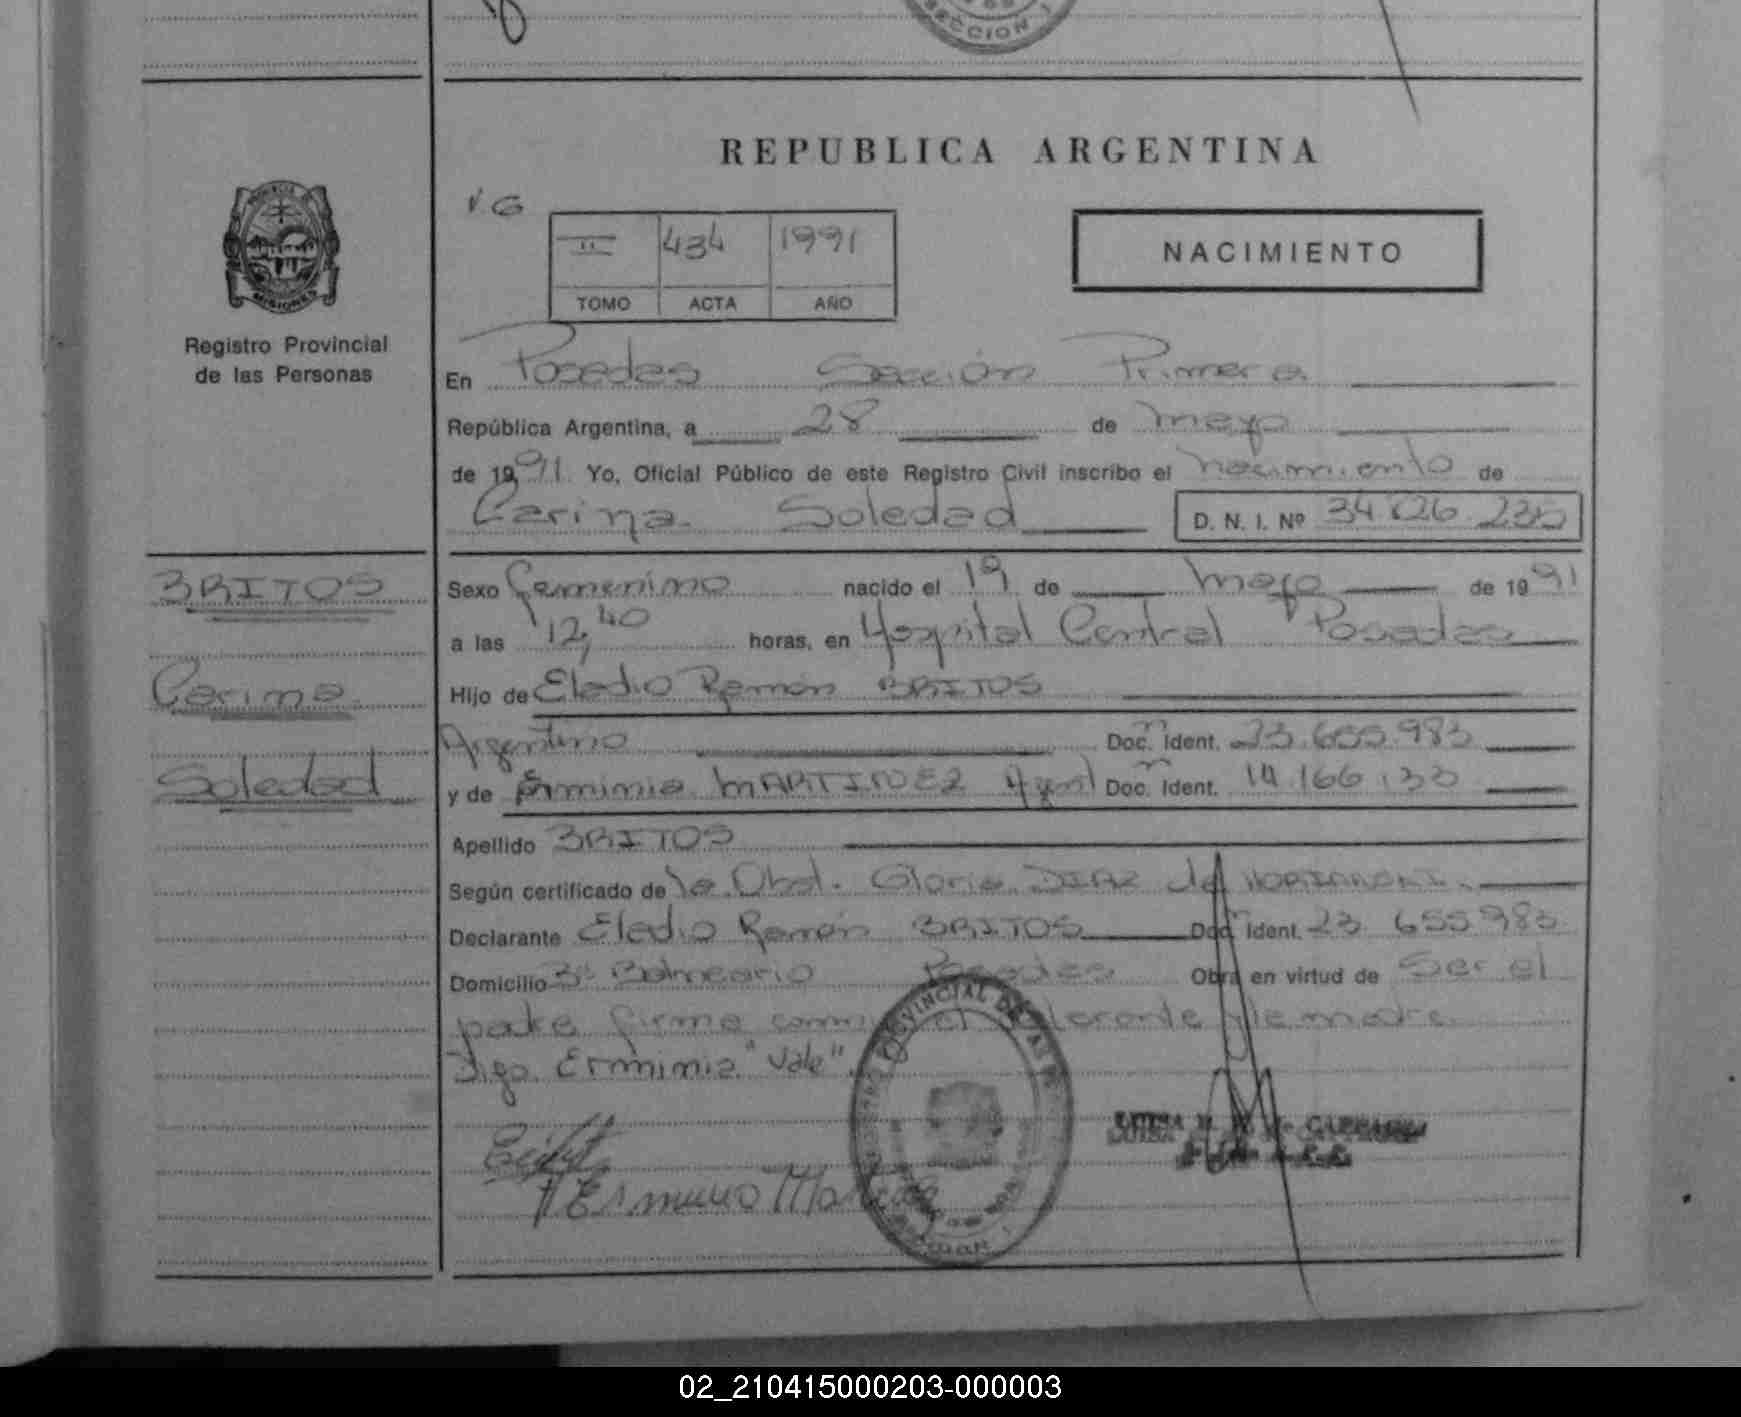 SECCION 1
REPUBLICA ARGENTINA
PROVINCIA
MISIONES
Registro Provincial
de las Personas
V.G
II 434 1991
TOMO ACTA AÑO
NACIMIENTO
En Posadas Sección Primera
República Argentina, a 28 de mayo
de 1991 Yo, Oficial Público de este Registro Civil inscribo el nacimiento de
Carina Soledad D. N. I. Nº 34 826 235
BRITOS
Carina
Soledad
Sexo femenino nacido el 19 de mayo de 1991
a las 12,40 horas, en Hospital Central Posadas
Hijo de Eladio Ramón BRITOS
Argentino Doc. Ident. 23.655.983
y de Erminia MARTINEZ Argent Doc. Ident. 14.166.133
Apellido BRITOS
Según certificado de la Obst. Gloria DIAZ de
Declarante Eladio Ramón BRITOS Doc. Ident. 23 655983
Domicilio Bº Balneario Posadas Obra en virtud de Ser el
padre firma y la madre
Digo Erminia "Vale"
Erminia
02_210415000203-000003